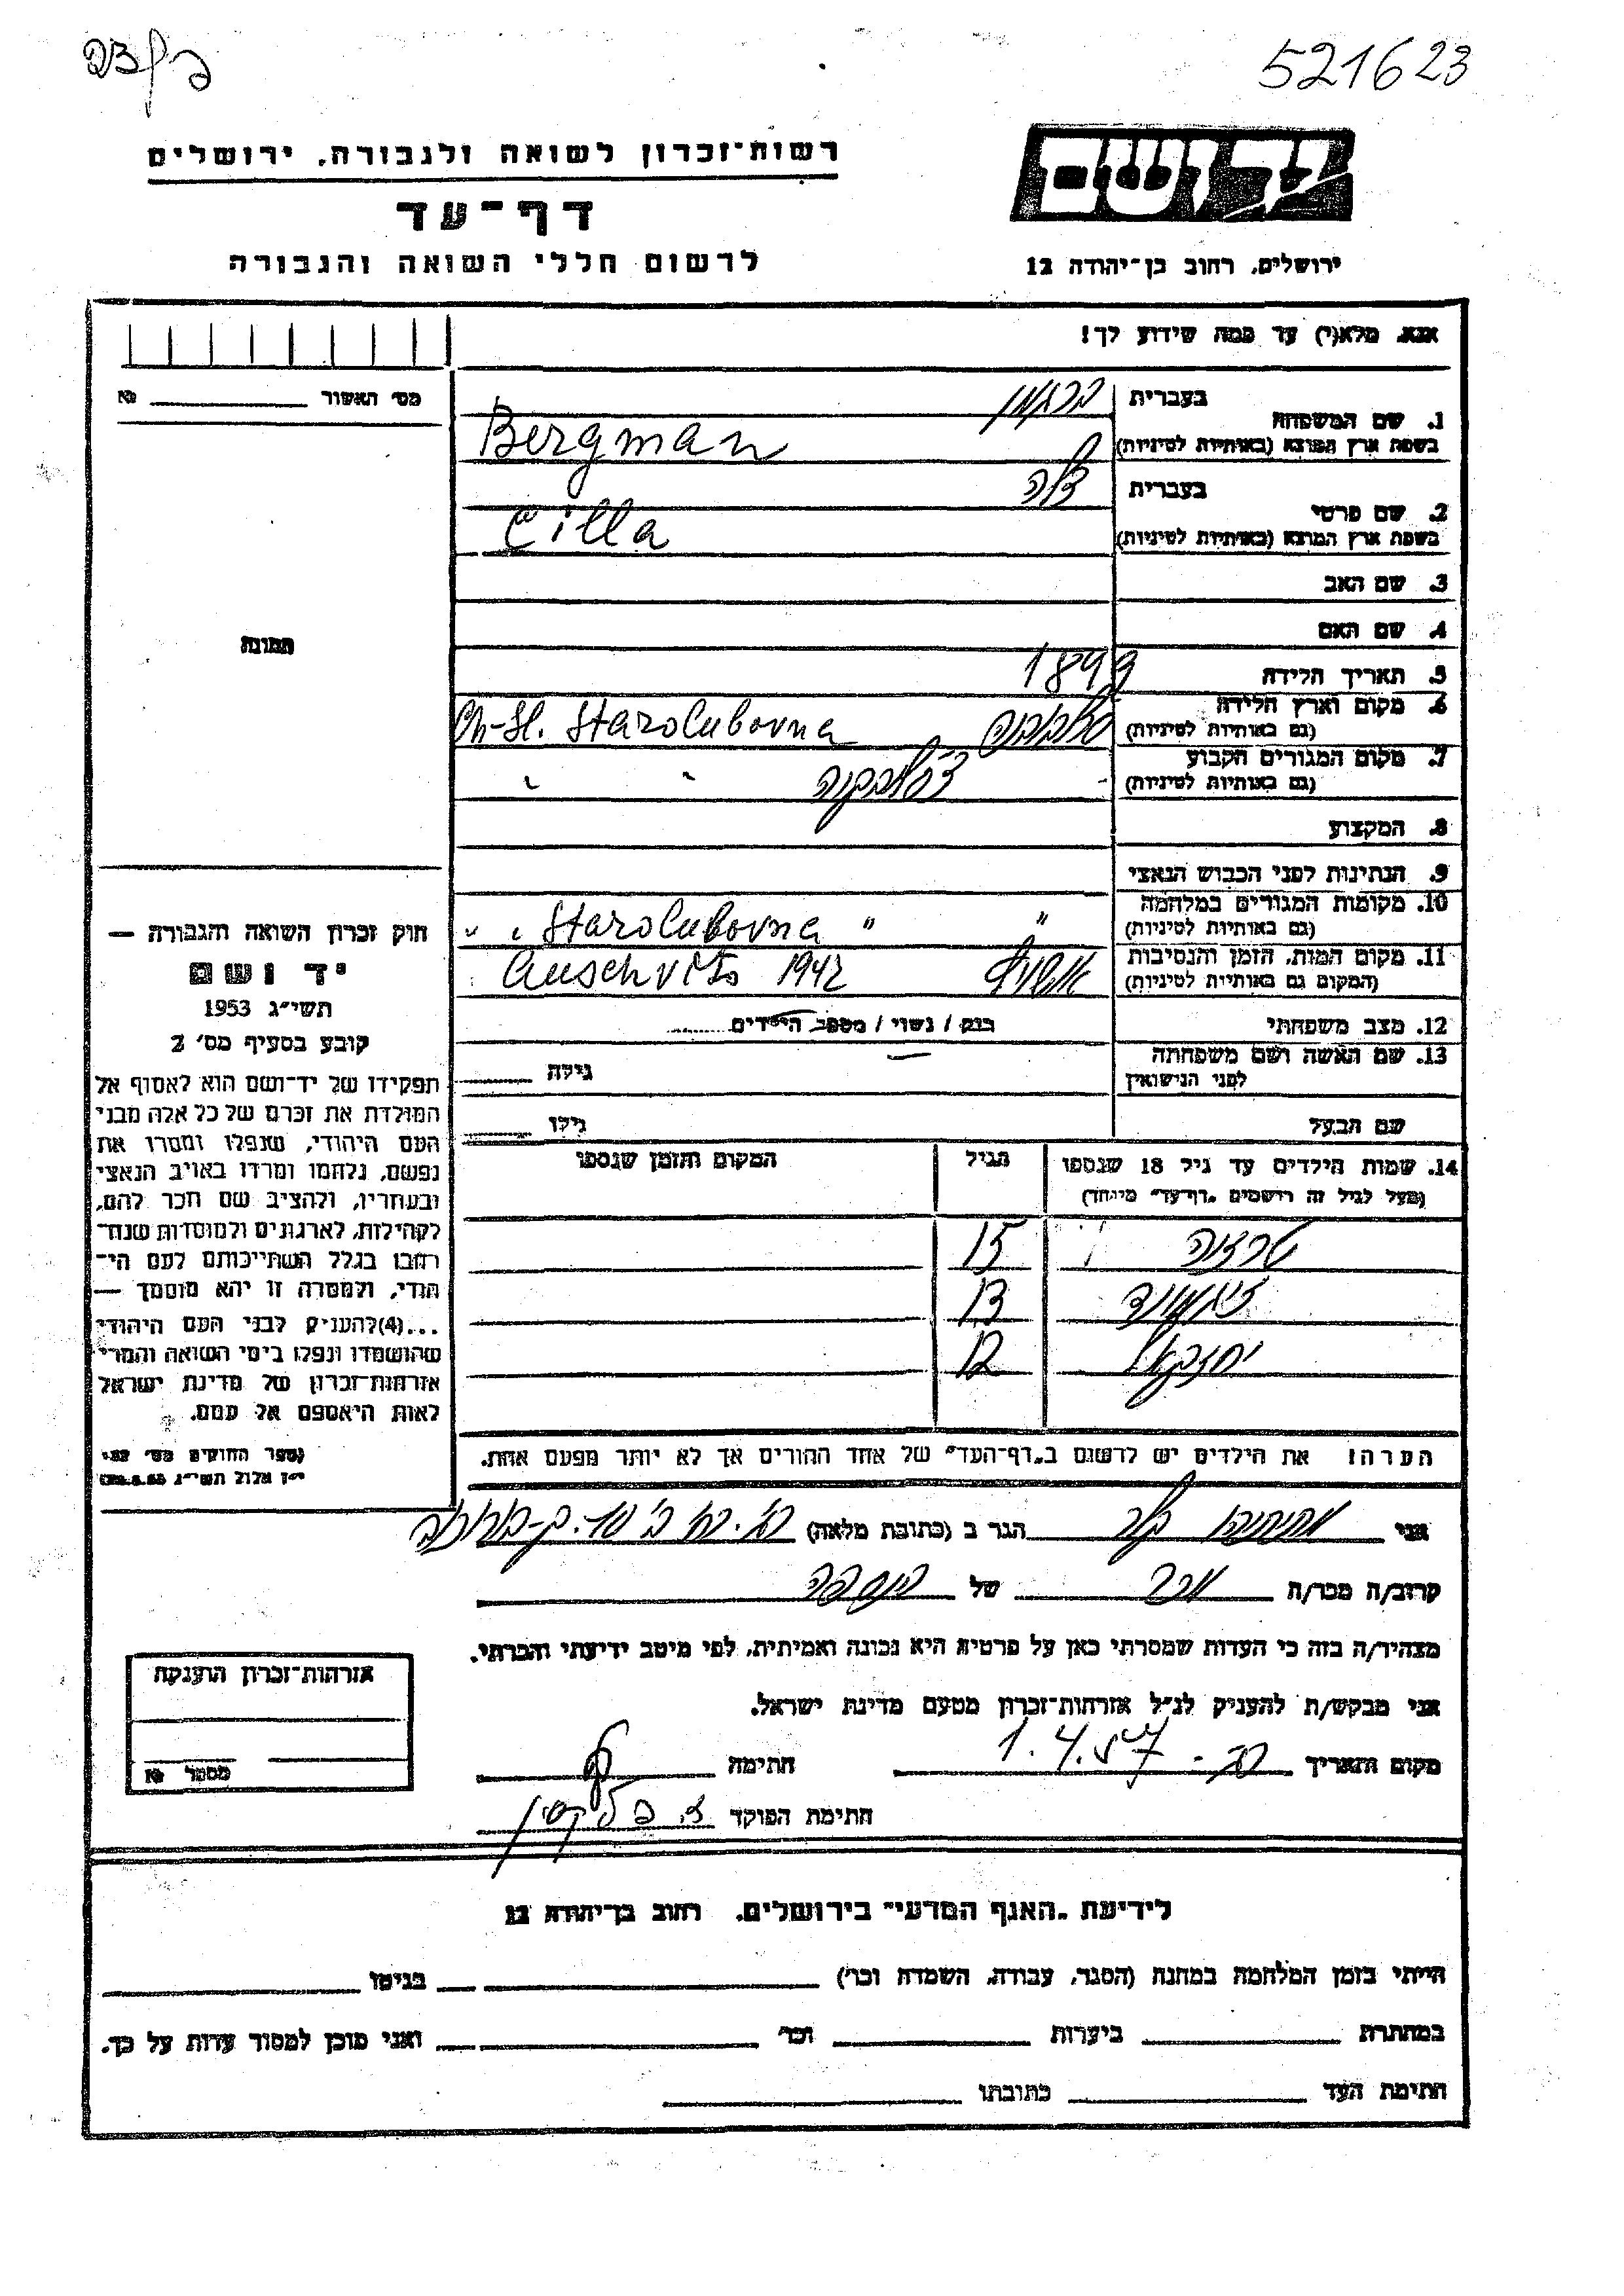 521623
רשות־זכרון לשואה ולגבורה, ירושלים
יד ושם
דף־עד
לרשום חללי השואה והגבורה
ירושלים, רחוב בן־יהודה 12
אנא, מלא(י) עד כמה שידוע לך!
מס׳ האשור
בעברית ברגמן
1. שם המשפחה
בשפת ארץ המוצא (באותיות לטיניות) Bergman
בעברית צילה
2. שם פרטי
בשפת ארץ המוצא (באותיות לטיניות) Cilla
3. שם האב
4. שם האם
תמונה
5. תאריך הלידה 1899
6. מקום וארץ הלידה
(גם באותיות לטיניות) Starolubovna
7. מקום המגורים הקבוע
(גם באותיות לטיניות) " "
8. המקצוע
9. הנתינות לפני הכבוש הנאצי
10. מקומות המגורים במלחמה
(גם באותיות לטיניות) " " Starolubovna " "
11. מקום המות, הזמן והנסיבות
(המקום גם באותיות לטיניות) אושויץ Auschvitz 1942
12. מצב משפחתי רווק / נשוי / מספר הילדים
13. שם האשה ושם משפחתה
לפני הנישואין — גילה
שם הבעל גילו
14. שמות הילדים עד גיל 18 שנספו הגיל המקום והזמן שנספו
(מעל לגיל זה רושמים „דף־עד” מיוחד)
15
זיגמונד 13
יחזקאל 12
הערה: את הילדים יש לרשום ב„דף־העד” של אחד ההורים אך לא יותר מפעם אחת.
חוק זכרון השואה והגבורה —
יד ושם
תשי״ג 1953
קובע בסעיף מס׳ 2
תפקידו של יד־ושם הוא לאסוף אל
המולדת את זכרם של כל אלה מבני
העם היהודי, שנפלו ומסרו את
נפשם, נלחמו ומרדו באויב הנאצי
ובעוזריו, ולהציב שם וזכר להם,
לקהילות, לארגונים ולמוסדות שנח־
רבו בגלל השתייכותם לעם הי־
הודי, ולמטרה זו יהא מוסמך —
...(4) להעניק לבני העם היהודי
שהושמדו ונפלו בימי השואה והמרי
אזרחות־זכרון של מדינת ישראל
לאות היאספם אל עמם.
(ספר החוקים מס׳ 132
י״ז אלול תשי״ג 28.8.53)
אני הגר ב (כתובת מלאה)
קרוב/ה מכר/ה מכר של הנספה
מצהיר/ה בזה כי העדות שמסרתי כאן על פרטיה היא נכונה ואמיתית, לפי מיטב ידיעתי והכרתי.
אני מבקש/ת להעניק לנ״ל אזרחות־זכרון מטעם מדינת ישראל.
מקום ותאריך 1.4.57 חתימה
חתימת הפוקד
אזרחות־זכרון הוענקה
מספר
לידיעת „האגף המדעי” בירושלים, רחוב בן־יהודה 12
הייתי בזמן המלחמה במחנה (הסגר, עבודה, השמדה וכו׳) בגיטו
במחתרת ביערות וכו׳ ואני מוכן למסור עדות על כך.
חתימת העד כתובתו